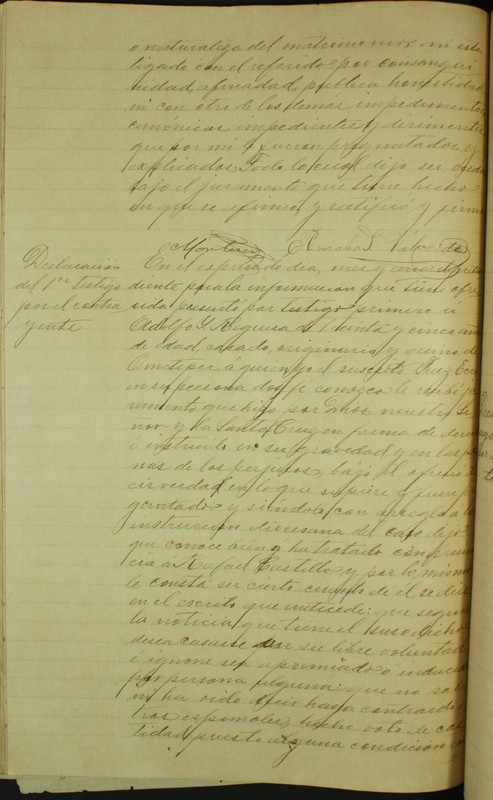 ó naturaleza del matrimonio: ni esta
ligado con el referido por consangui
nidad, afinidad, publica honestidad
ni con otro de los demas impedimentos
canónicos impedientes y dirimentes
que por mi le fueron preguntados y
explicados. Todo lo cual dijo ser verdad
bajo el juramento que tiene hecho
en que se afirmó y ratificó y firmó
Amado L. Valverde
Declaración
del 1er testigo
por el contra
yente
En el espresado dia, mes y año el preten
diente para la informacion que tiene ofre
cida presentó por testigo primero á
Adolfo de treinta y cinco años
de edad, casado, originario y vecino de
Ometepec á quien yo el suscrito Juez Ecco
en su persona doy fe conozco le recibí ju
ramento que hizo por Dios nuestro Se
ñor y la Santa Cruz en forma de derecho
é instruido en su gravedad y en las pe
nas de los perjuros, bajo él ofreció de
cir verdad en lo que supiere y fuere pre
guntado y siéndolo con arreglo á la
instruccion diocesana del caso dijo:
que conoce bien y ha tratado con frecuen
cia á Rafael Castillo y por lo mismo
le consta ser cierto cuanto de el se dice
en el escrito que antecede: que segun
la noticia que tiene el susodicho
desea casarse por su libre voluntad
é ignora sea apremiado o inducido
por persona alguna: que no sabe
ni ha oido que haya contraido o
tros esponsales, hecho voto de cas
tidad, puesto alguna condicion